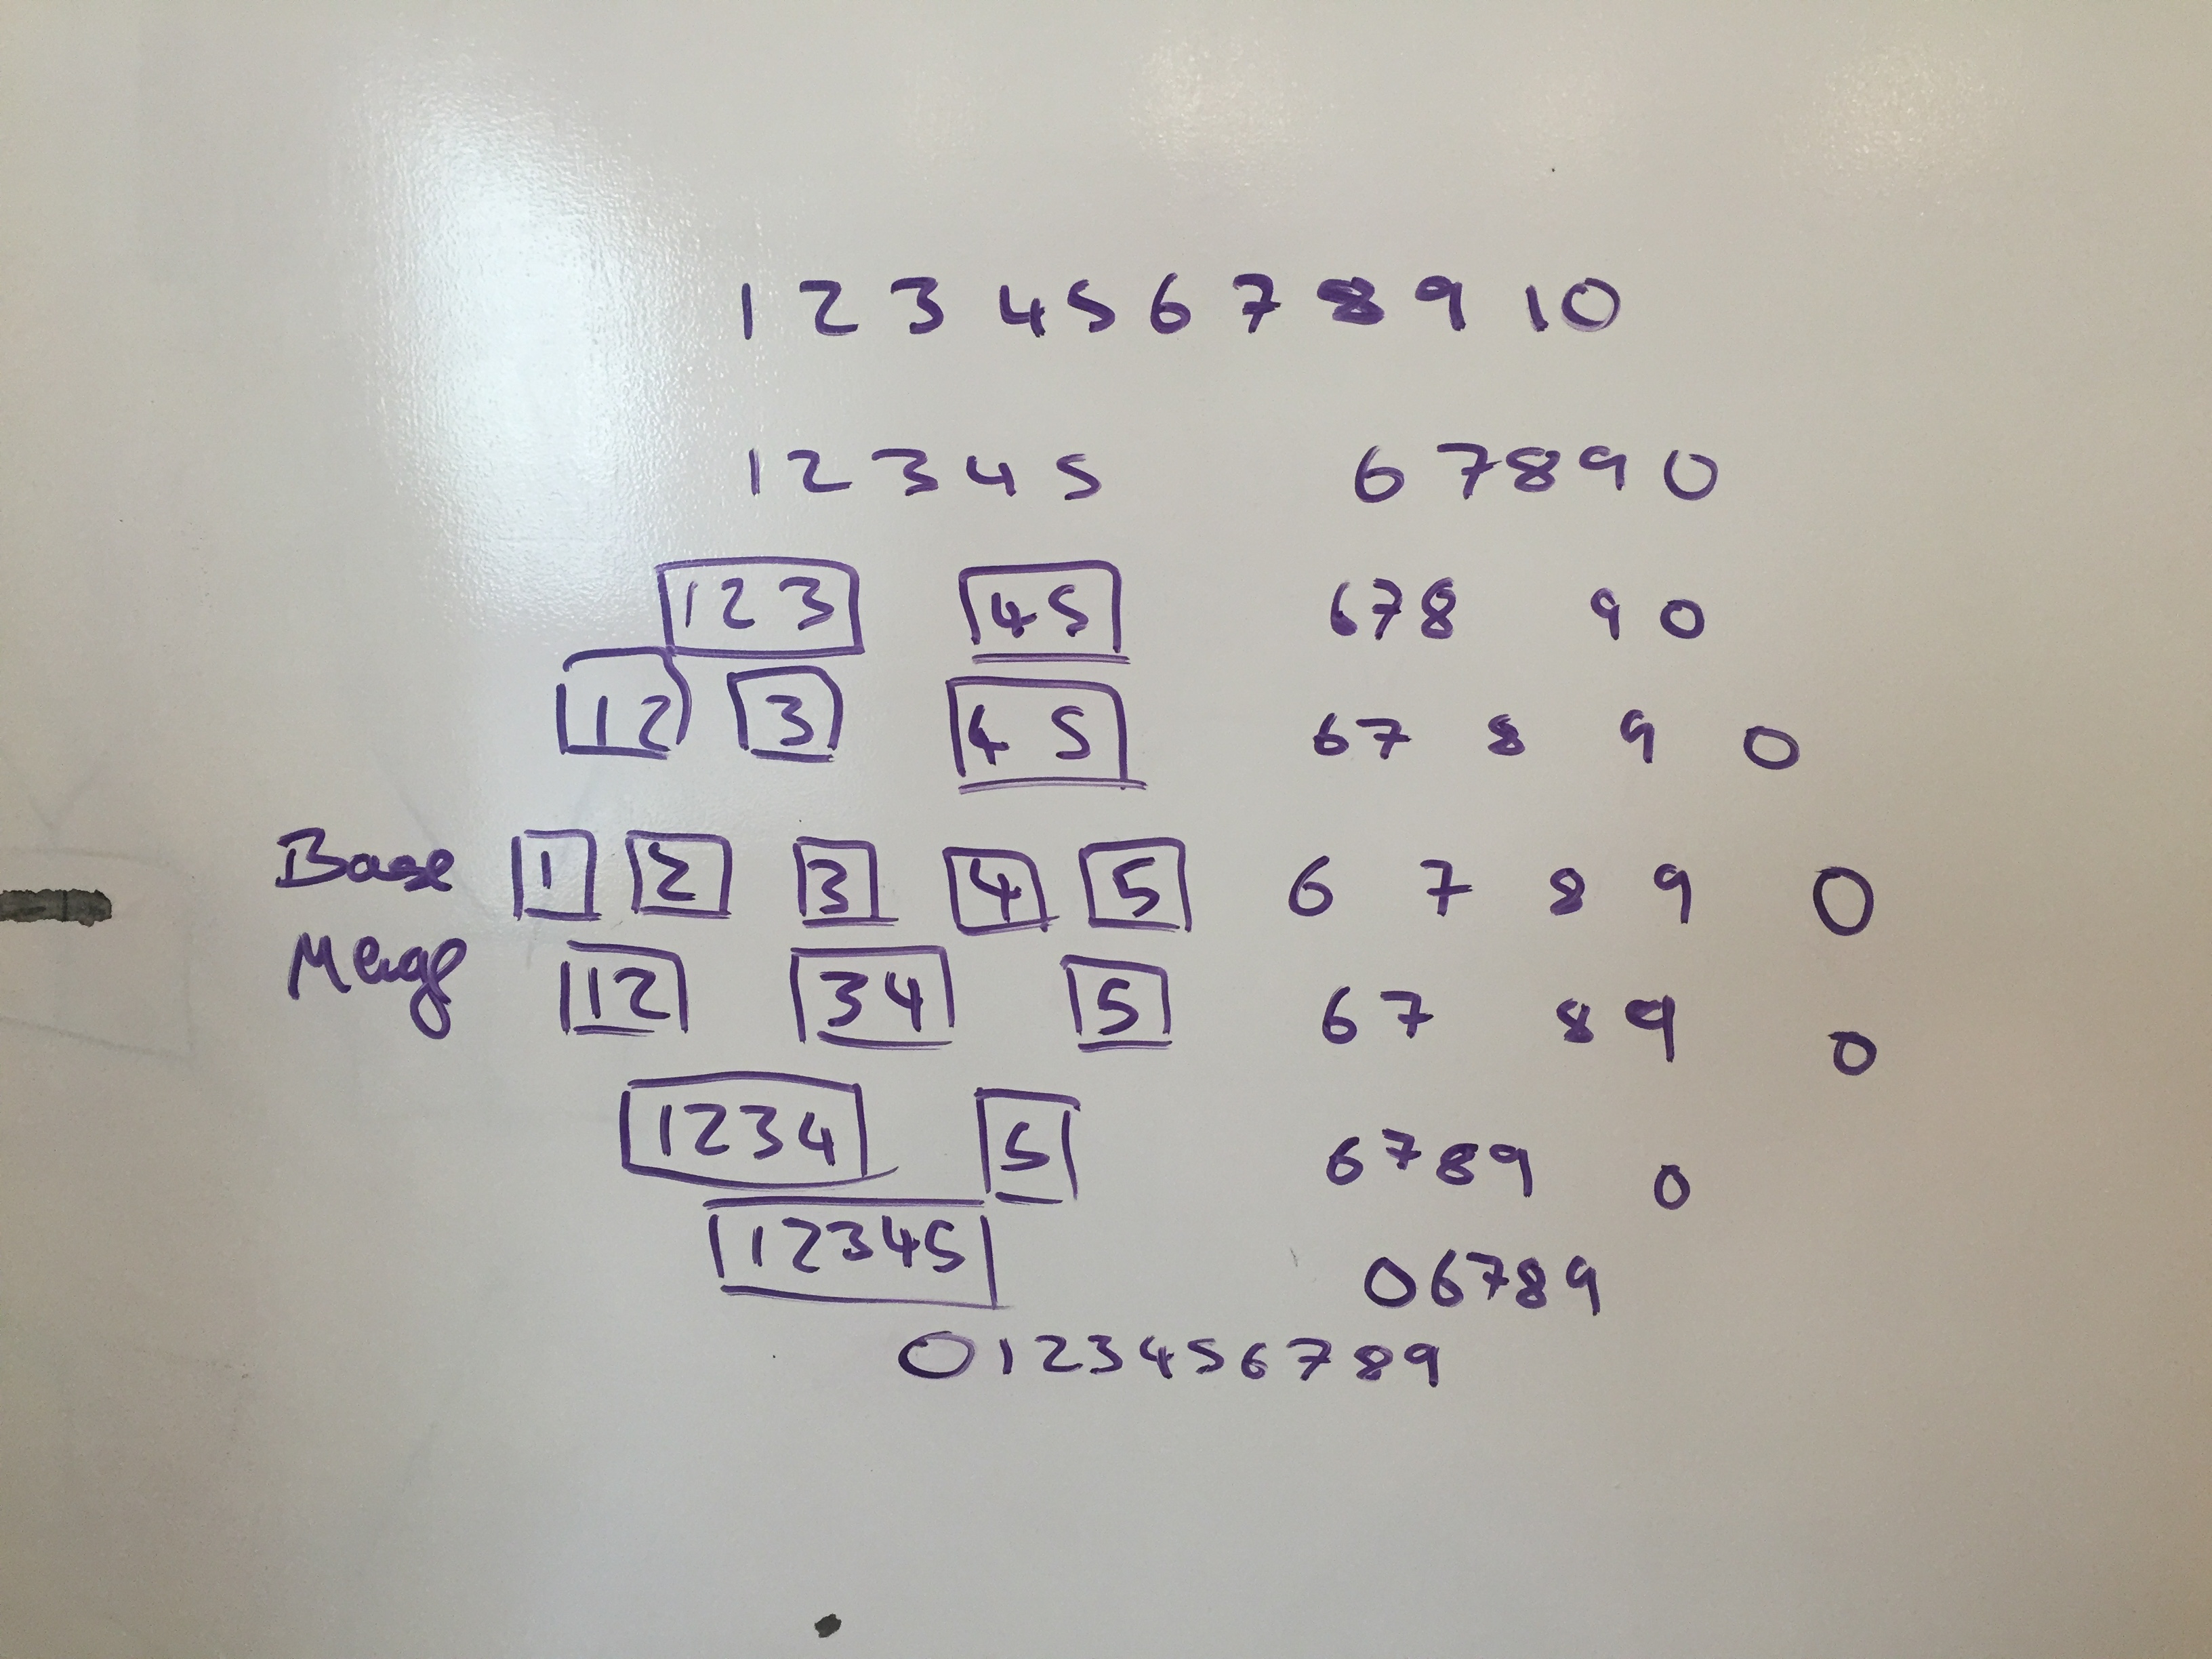 1 2 3 4 5 6 7 8 9 10
1 2 3 4 5 6 7 8 9 0
1 2 3 4 5 6 7 8 9 0
1 2 3 4 5 6 7 8 9 0
Base 1 2 3 4 5 6 7 8 9 0
Merge 1 2 3 4 5 6 7 8 9 0
1 2 3 4 5 6 7 8 9 0
1 2 3 4 5 0 6 7 8 9
0 1 2 3 4 5 6 7 8 9